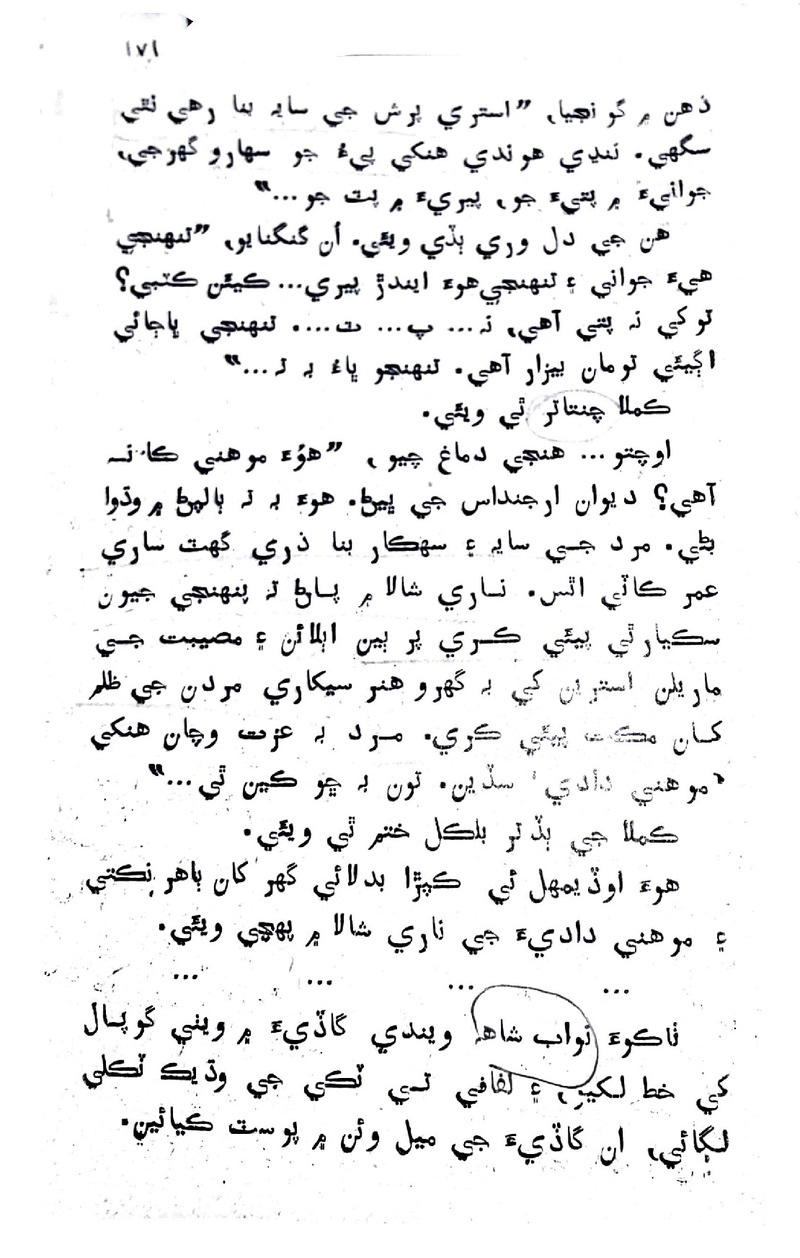 ۱۷۱
ذهن ۾ گونجيا، ”استري پرش جي سايہ بنا رهي نٿي
سگهي. ننڍي هوندي هنکي پيءُ جو سهارو گهرجي،
جوانيءَ ۾ پتيءَ جو، پيريءَ ۾ پٽ جو...“
هن جي دل وري ٻڏي ويئي. اُن گنگنايو، ”تنهنجي
هيءَ جواني ۽ تنهنجي هوءَ ايندڙ پيري... ڪيئن ڪٽبي؟
توکي نہ پتي آهي، نہ... پ... ٽ.... تنهنجي ڀاڄائي
اڳيئي تومان بيزار آهي. تنهنجو ڀاءُ بہ تہ...“
ڪملا چنتاتر ٿي ويئي.
اوچتو... هنجي دماغ چيو، ”هوُءَ موهني ڪانہ
آهي؟ ديوان ارجنداس جي ڀيڻ. هوءَ بہ تہ ٻالپڻ ۾ وڌوا
بڻي. مرد جي سايہ ۽ سهڪار بنا ذري گهٽ ساري
عمر ڪاٽي اٿس. ناري شالا ۾ پاڻ تہ پنهنجي جيون
سڪيارٿي پيئي ڪري پر ٻين ابلائن ۽ مصيبت جي
ماريلن استرين کي بہ گهرو هنر سيکاري مردن جي ظلم
کان مڪت پيئي ڪري. مرد بہ عزت وچان هنکي
’موهني دادي‘ سڏين. تون بہ ڇو ڪين ٿي...“
ڪملا جي ٻڏتر بلڪل ختم ٿي ويئي.
هوءَ اوڏيمهل ئي ڪپڙا بدلائي گهر کان ٻاهر نڪتي
۽ موهني داديءَ جي ناري شالا ۾ پهچي ويئي.
... ... ... ...
ٿاڪوءَ نواب شاهہ ويندي گاڏيءَ ۾ ويٺي گوپال
کي خط لکيو، ۽ لفافي تي ٽڪي جي وڌيڪ ٽڪلي
لڳائي، ان گاڏيءَ جي ميل وئن ۾ پوسٽ ڪيائين.